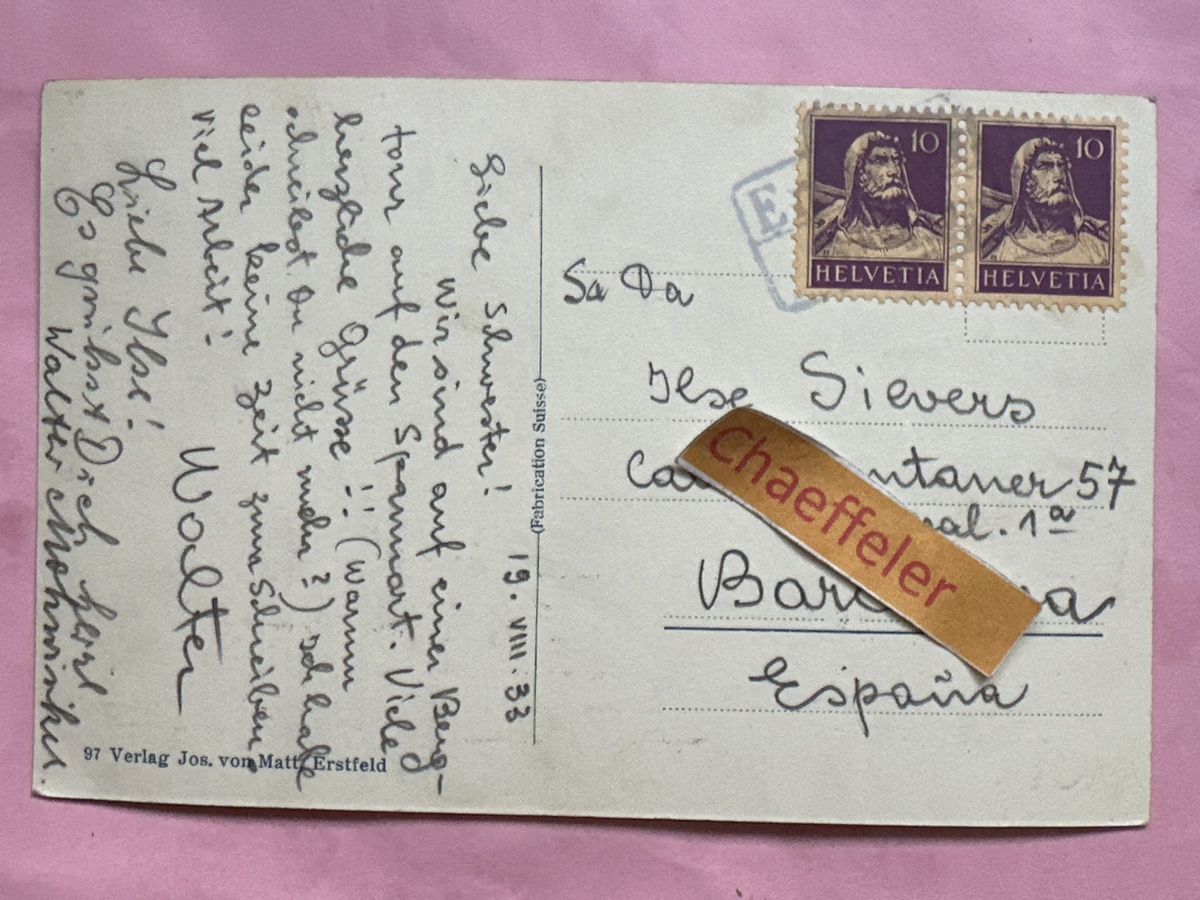 Liebe Schwester! 19. VIII. 33
Wir sind auf einer Berg-
tour auf den Spannort. Viele
herzliche Grüsse!!! (Warum
schreibst Du nicht mehr?) Ich habe
leider keine Zeit zum Schreiben.
Viel Arbeit!
Walter
Liebe Ilse!
Es grüsst Dich herzl.
Walter
97 Verlag Jos. von Matt, Erstfeld
(Fabrication Suisse)
E
10 10
HELVETIA HELVETIA
Sa Da
Ilse Sievers
ntaner 57
1ª
Bar a
España
Chaeffeler